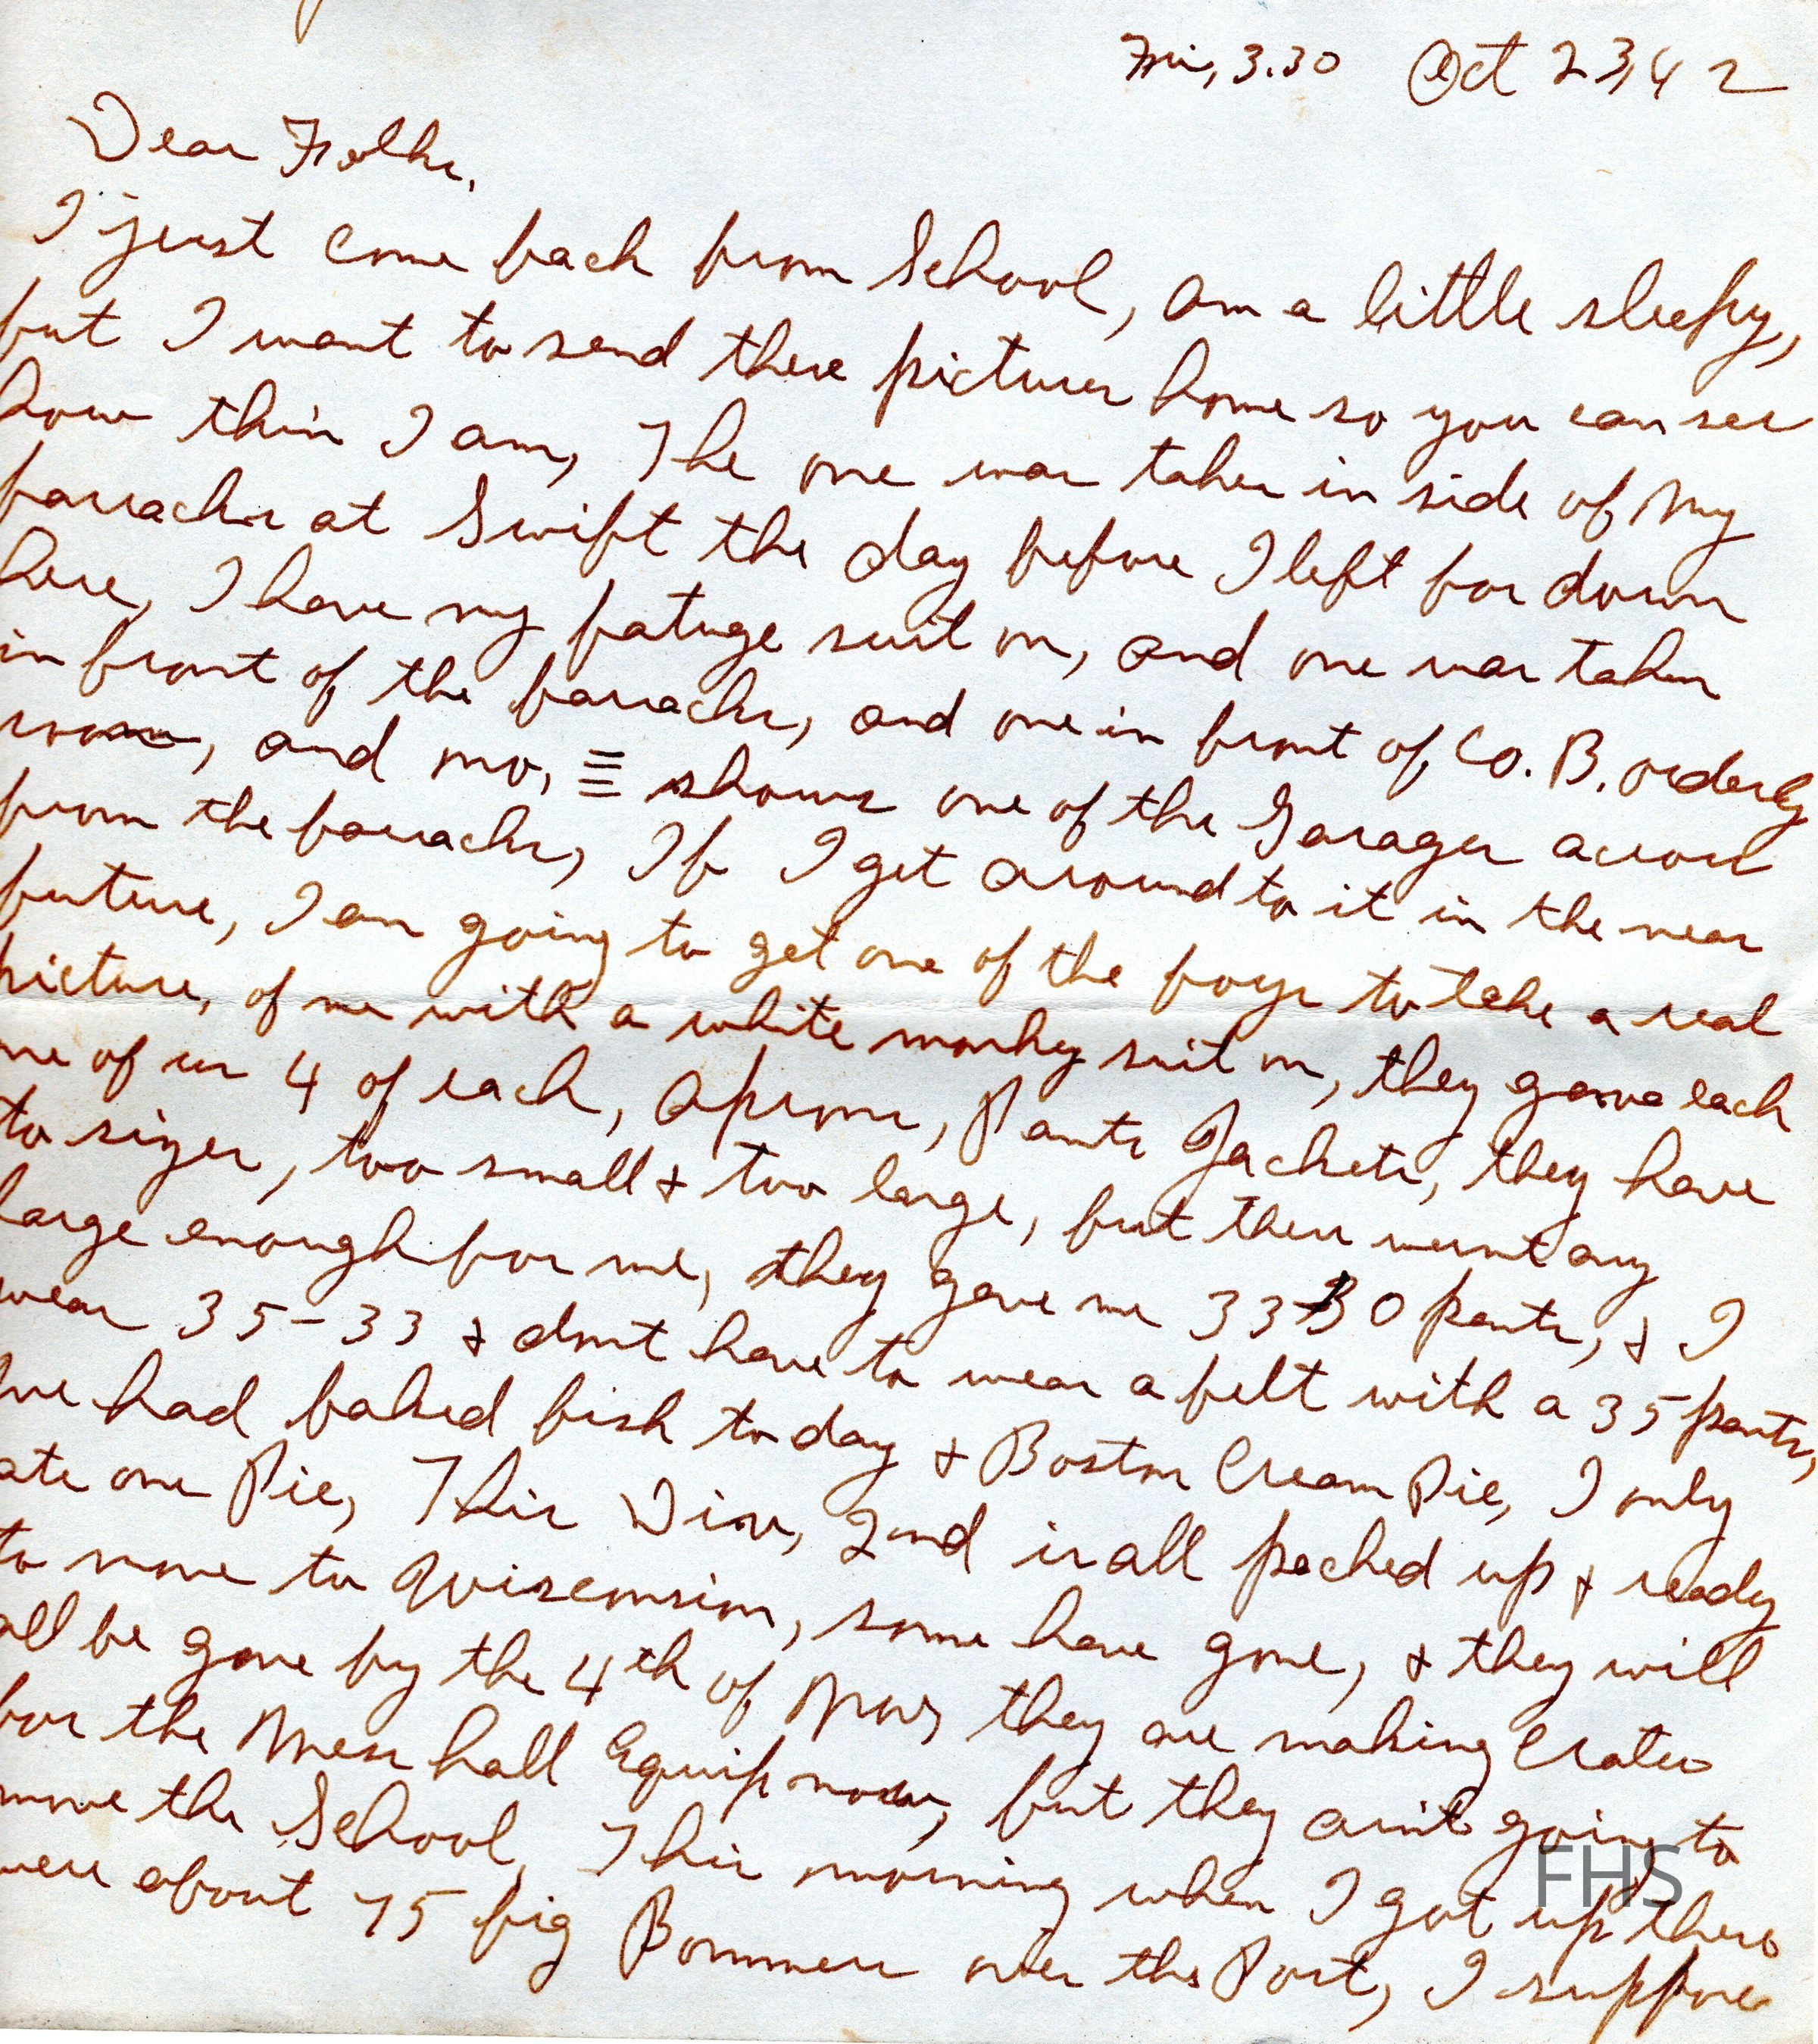 Fri, 3.30 Oct 23, 42
Dear Folks,
I just come back from School, am a little sleepy,
but I want to send these pictures home so you can see
how thin I am, The one was taken in side of my
barracks at Swift the day before I left for down
here, I have my fatuge suit on, and one was taken
in front of the barracks, and one in front of Co. B. orderly
room, and no, shows one of the Garages across
from the barracks, If I get around to it in the near
future, I am going to get one of the boys to take a real
picture, of me with a white monkey suit on, they gave each
one of us 4 of each, Aprons, Pants Jackets, they have
to sizes, too small & too large, but there wernt any
large enough for me, they gave me 33-30 pants, & I
wear 35-33 & dont have to wear a belt with a 35 pants,
We had baked fish to day & Boston Cream Pie, I only
ate one Pie, This Div, 2nd is all packed up & ready
to move to Wisconsin, some have gone, & they will
all be gone by the 4th of Nov, they are making Crates
for the Mess hall Equip now, but they ain't going to
move the School, This morning when I got up there
were about 75 big Bommers over the Post, I suppose
FHS